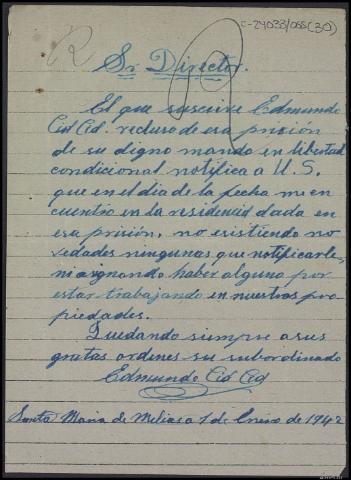 C-24033/068(30)
R
Sr Director.
El que suscrive Edmundo
Cid Cid. recluso de esa prision
de su digno mando en libertad
condicional notifica a U. S.
que en el dia de la fecha me en
cuentro en la residencid dada en
esa prision, no existiendo no
vedades ningunas que notificarle,
ni asignando haber alguno por
estar trabajando en nuestras pro-
piedades.
Quedando siempre a sus
gratas ordenes su subordinado
Edmundo Cid Cid
Santa Maria de Melias a 1 de Enero de 1942